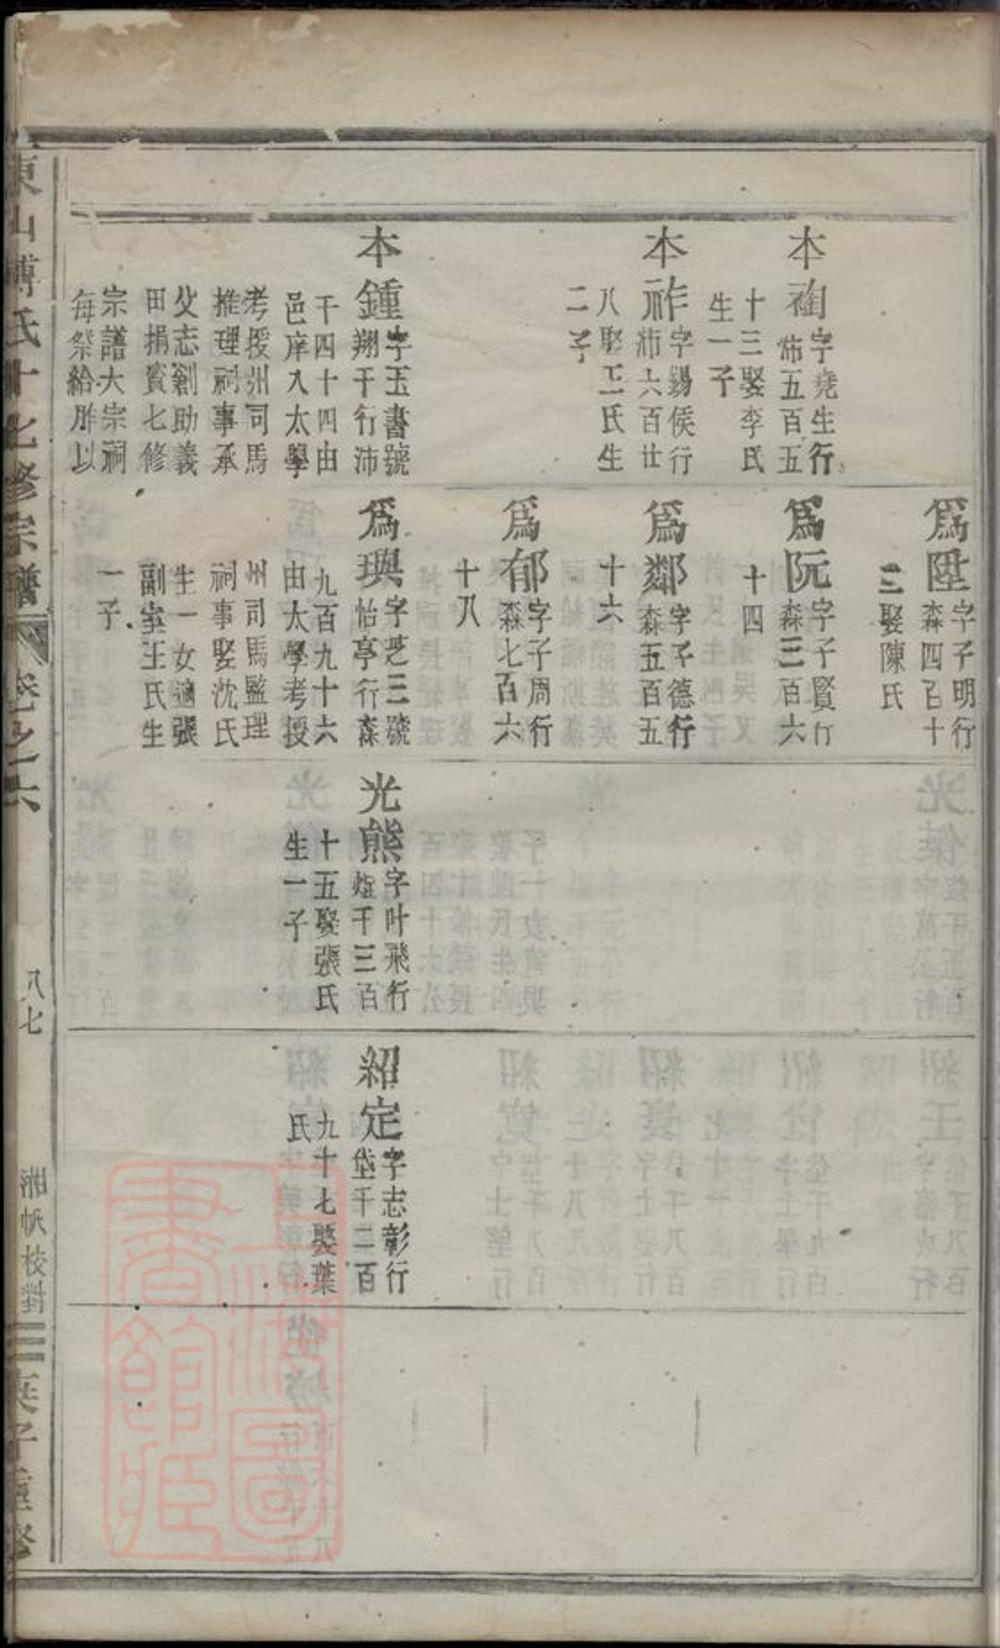 本䄂字堯生行
沛五百五
十三娶李氏
生一子
本祚字錫侯行
沛六百廿
八娶王氏生
二子
本鍾字玉書號
翔千行沛
千四十四由
邑庠入太學
考授州司馬
推理祠事承
父志創助義
田捐貲七修
宗譜大宗祠
每祭給胙以
爲陞字子明行
森四百十
三娶陳氏
爲阮字子賢行
森三百六
十四
爲鄰字子德行
森五百五
十六
爲郁字子周行
森七百六
十八
爲璵字芝三號
怡亭行森
九百九十六
由太學考授
州司馬監理
祠事娶沈氏
生一女適張
副室王氏生
一子
光熊字叶飛行
煃千三百
十五娶張氏
生一子
紹定字志彰行
垡千二百
九十七娶葉
氏
東山傅氏十七修宗譜
卷之六
八七
湘帆校對
子重修